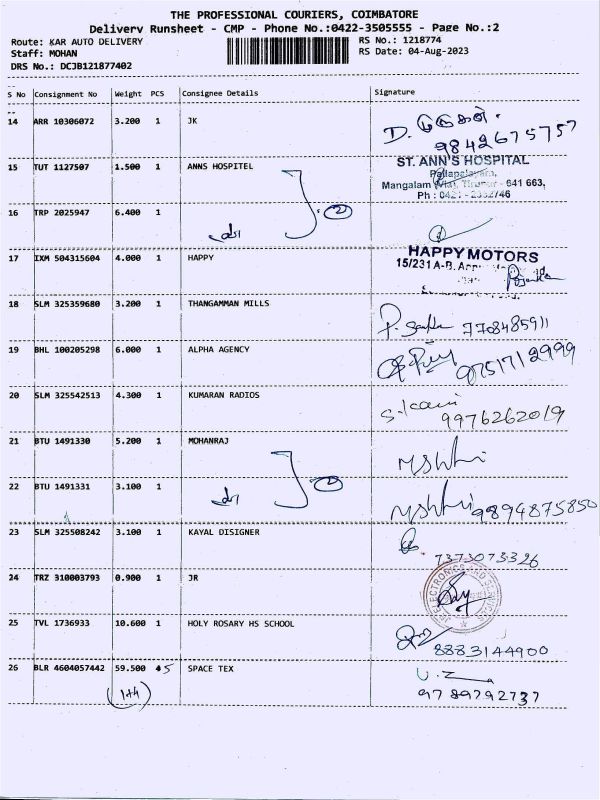 THE PROFESSIONAL COURIERS, COIMBATORE
Delivery Runsheet - CMP - Phone No.:0422-3505555 - Page No.:2
Route: KAR AUTO DELIVERY RS No.: 1218774
Staff: MOHAN RS Date: 04-Aug-2023
DRS No.: DCJB121877402
S No Consignment No Weight PCS Consignee Details Signature
14 ARR 10306072 3.200 1 JK D. முருகன்.
9842675757
15 TUT 1127507 1.500 1 ANNS HOSPITEL ST. ANN'S HOSPITAL
Pallapalayam,
Mangalam Tirupur - 641 663.
16 TRP 2025947 6.400 1 2
17 IXM 504315604 4.000 1 HAPPY HAPPY MOTORS
15/231 A-B,
18 SLM 325359680 3.200 1 THANGAMMAN MILLS 7708485911
19 BHL 100205298 6.000 1 ALPHA AGENCY 9751712999
20 SLM 325542513 4.300 1 KUMARAN RADIOS
9976262019
21 BTU 1491330 5.200 1 MOHANRAJ
22 BTU 1491331 3.100 1 2 9894875850
23 SLM 325508242 3.100 1 KAYAL DISIGNER
7373073326
24 TRZ 310003793 0.900 1 JR ELECTRONICS AND SERVICES
25 TVL 1736933 10.600 1 HOLY ROSARY HS SCHOOL
8883144900
26 BLR 4604057442 59.500 5 SPACE TEX
(1+4) 9789792737